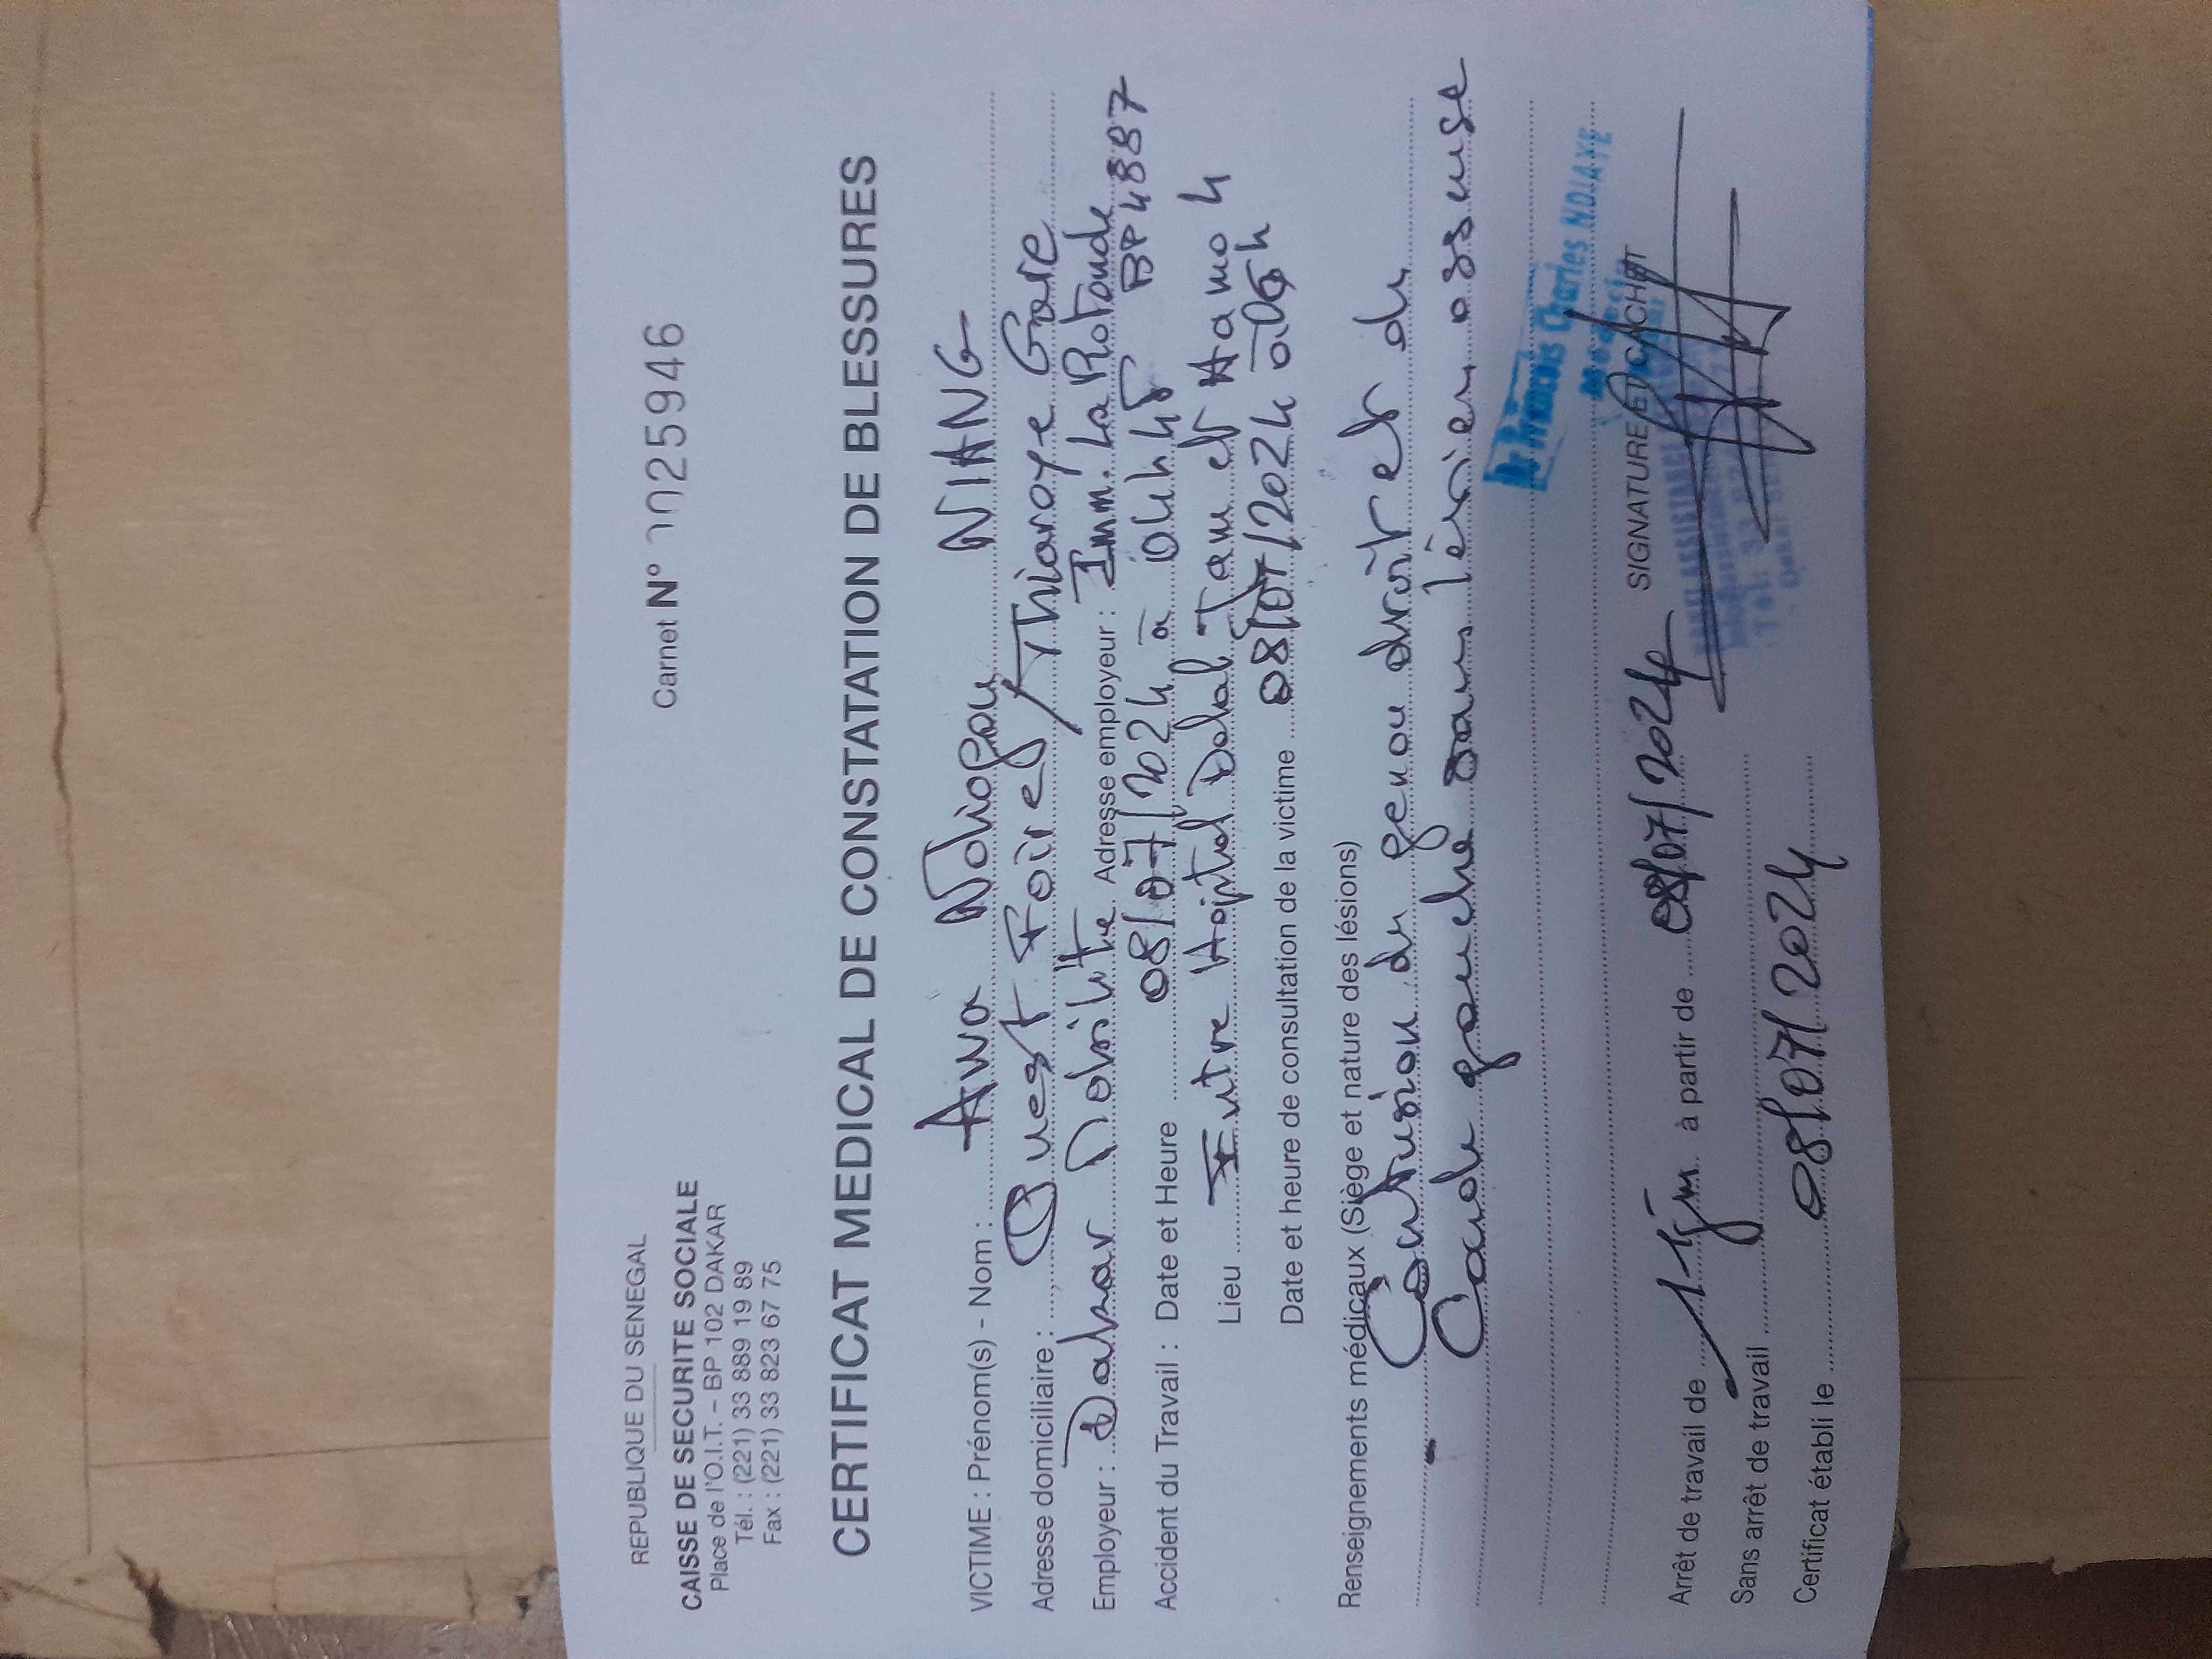 REPUBLIQUE DU SENEGAL
CAISSE DE SECURITE SOCIALE
Place de l'O.I.T. – BP 102 DAKAR
Tél. : (221) 33 889 19 89
Fax : (221) 33 823 67 75
Carnet N° 025946
CERTIFICAT MEDICAL DE CONSTATATION DE BLESSURES
VICTIME : Prénom(s) - Nom : Awa NIANG
Adresse domiciliaire : Ouest Foire / Thiaroye Gare
Employeur : Dakar Mobilité Adresse employeur : Imm. La Rotonde
BP 4887
Accident du Travail : Date et Heure 08/07/2024 à 04h45
Lieu Entre Hôpital Dalal Jam et Hamo 4
Date et heure de consultation de la victime 08/07/2024 à
Renseignements médicaux (Siège et nature des lésions)
Contusion du genou droit et du
Coude gauche sans lésion osseuse
Dr François Charles NDIAYE
Médecin
Arrêt de travail de à partir de 08/07/2024 SIGNATURE ET CACHET
Sans arrêt de travail
Certificat établi le 08/07/2024